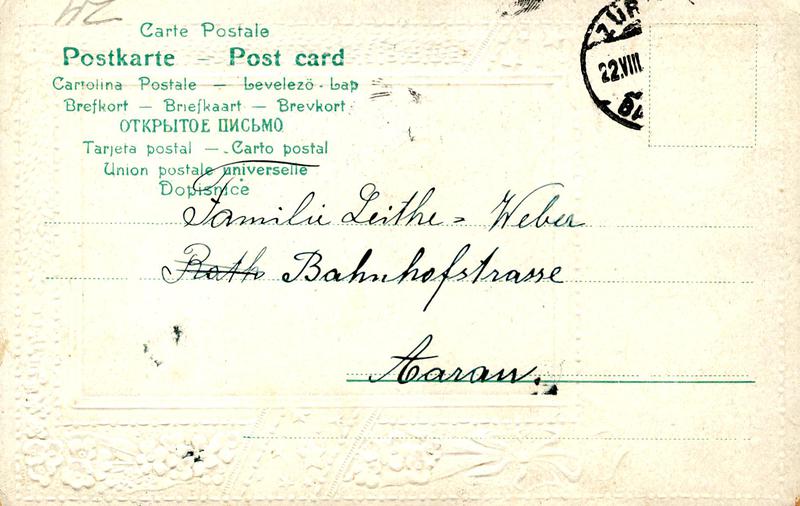 Carte Postale
Postkarte — Post card
Cartolina Postale — Levelező-Lap
Brefkort — Briefkaart — Brevkort
ОТКРЫТОЕ ПИСЬМО
Tarjeta postal — Carto postal
Union postale universelle
Dopisnice
ZÜR
22.VIII.
Familie Leithe=Weber
Roth Bahnhofstrasse
Aarau.